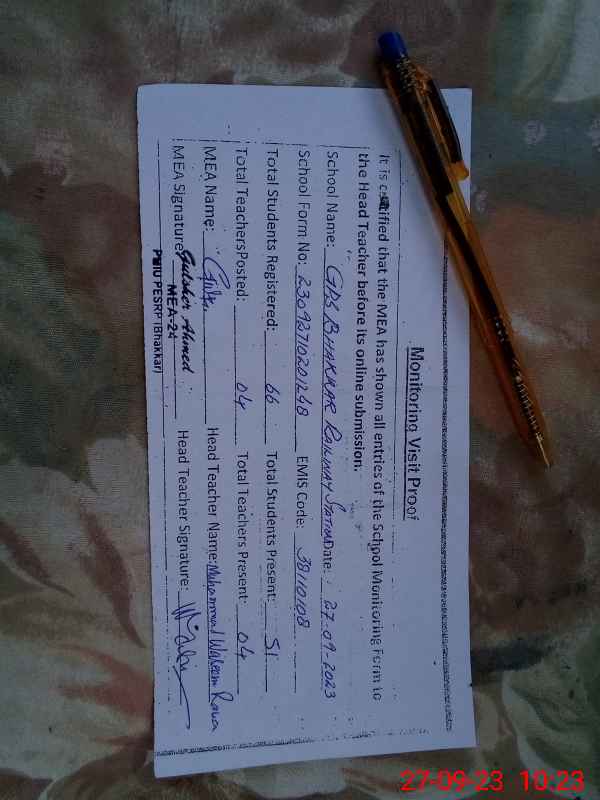 Monitoring Visit Proof
It is certified that the MEA has shown all entries of the School Monitoring Form to
the Head Teacher before its online submission.
School Name: GPS BHAKKAR RAILWAY STATION Date: 27-09-2023
School Form No: 23092710201248 EMIS Code: 38110108
Total Students Registered: 66 Total Students Present: 51
Total TeachersPosted: 04 Total Teachers Present: 04
MEA Name: Head Teacher Name: Muhammad Waseem Rana
MEA Signature: Gulsher Ahmed Head Teacher Signature:
MEA-24
PMIU PESRP (Bhakkar)
27-09-23 10:23